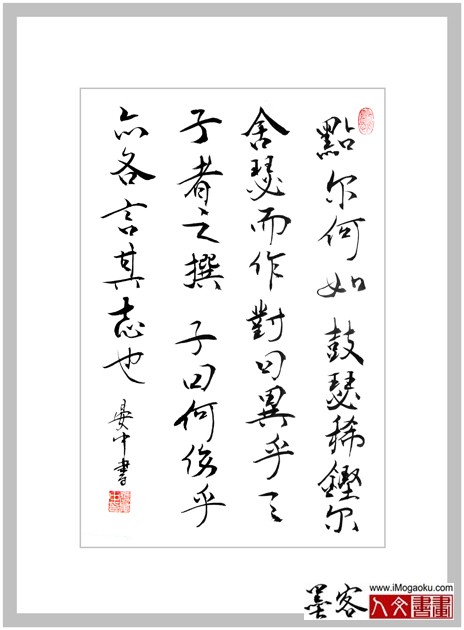 點尔何如 鼓瑟稀鏗尔
舍瑟而作 對曰異乎三
子者之撰 子曰何傷乎
亦各言其志也
晏中書
墨客
www.iMogaoku.com
人文書畫